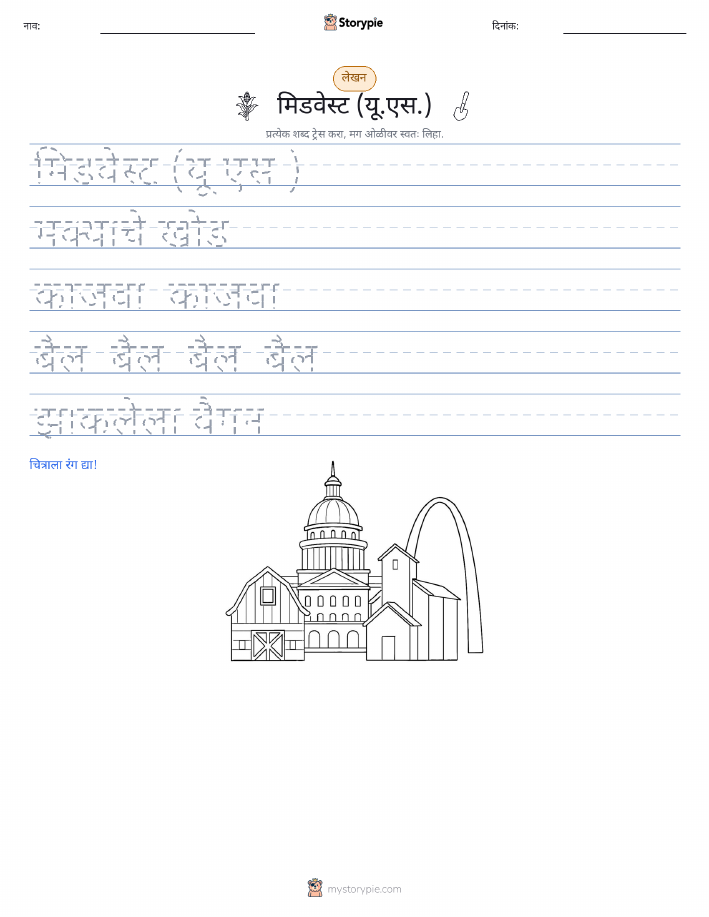 नाव:
Storypie
दिनांक:
लेखन
मिडवेस्ट (यू.एस.)
प्रत्येक शब्द ट्रेस करा, मग ओळीवर स्वतः लिहा.
मिडवेस्ट (यू एस )
मक्याचे खोड
काजवा काजवा
बैल बैल बैल बैल
झाकलेला वॅगन
चित्राला रंग द्या!
mystorypie.com